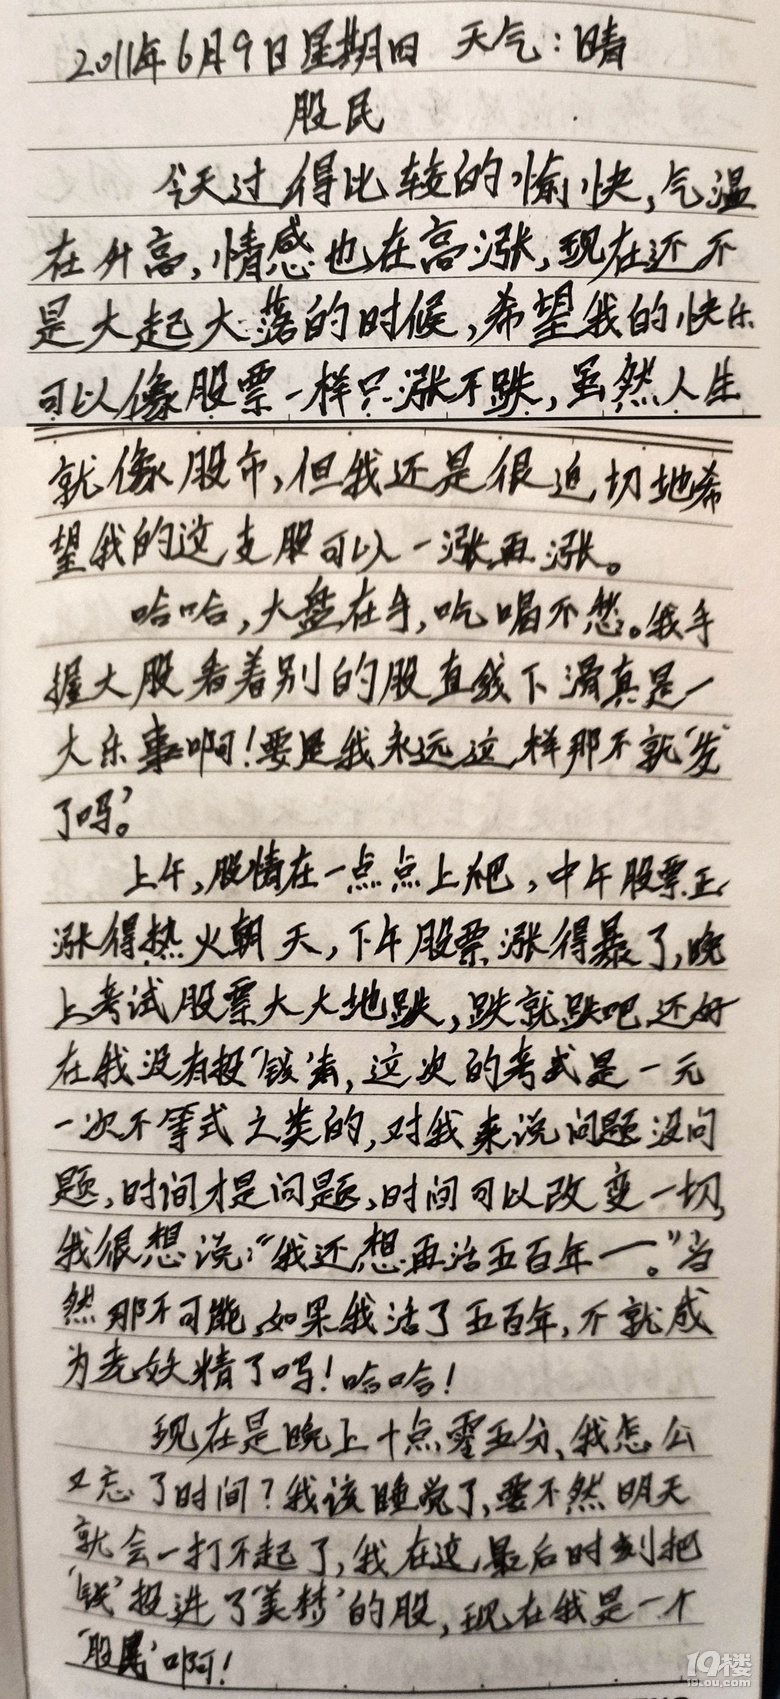 2011年6月9日星期四 天气：晴
股民
今天过得比较的愉快，气温
在升高，情感也在高涨，现在还不
是大起大落的时候，希望我的快乐
可以像股票一样只涨不跌，虽然人生
就像股市，但我还是很迫切地希
望我的这支股可以一涨再涨。
哈哈，大盘在手，吃喝不愁。我手
握大股看着别的股直线下滑真是一
大乐事啊！要是我永远这样那不就“发”
了吗？
上午，股情在一点点上爬，中午股票正
涨得热火朝天，下午股票涨得暴了，晚
上考试股票大大地跌，跌就跌吧，还好
在我没有投‘钱’去，这次的考试是一元
一次不等式之类的，对我来说问题没问
题，时间才是问题，时间可以改变一切，
我很想说：“我还想再活五百年一。”当
然那不可能，如果我活了五百年，不就成
为老妖精了吗！哈哈！
现在是晚上十点零五分，我怎么
又忘了时间？我该睡觉了，要不然明天
就会一打不起了，我在这最后时刻把
‘钱’投进了‘美梦’的股，现在我是一个
‘股民’啊！
19楼
19lou.com